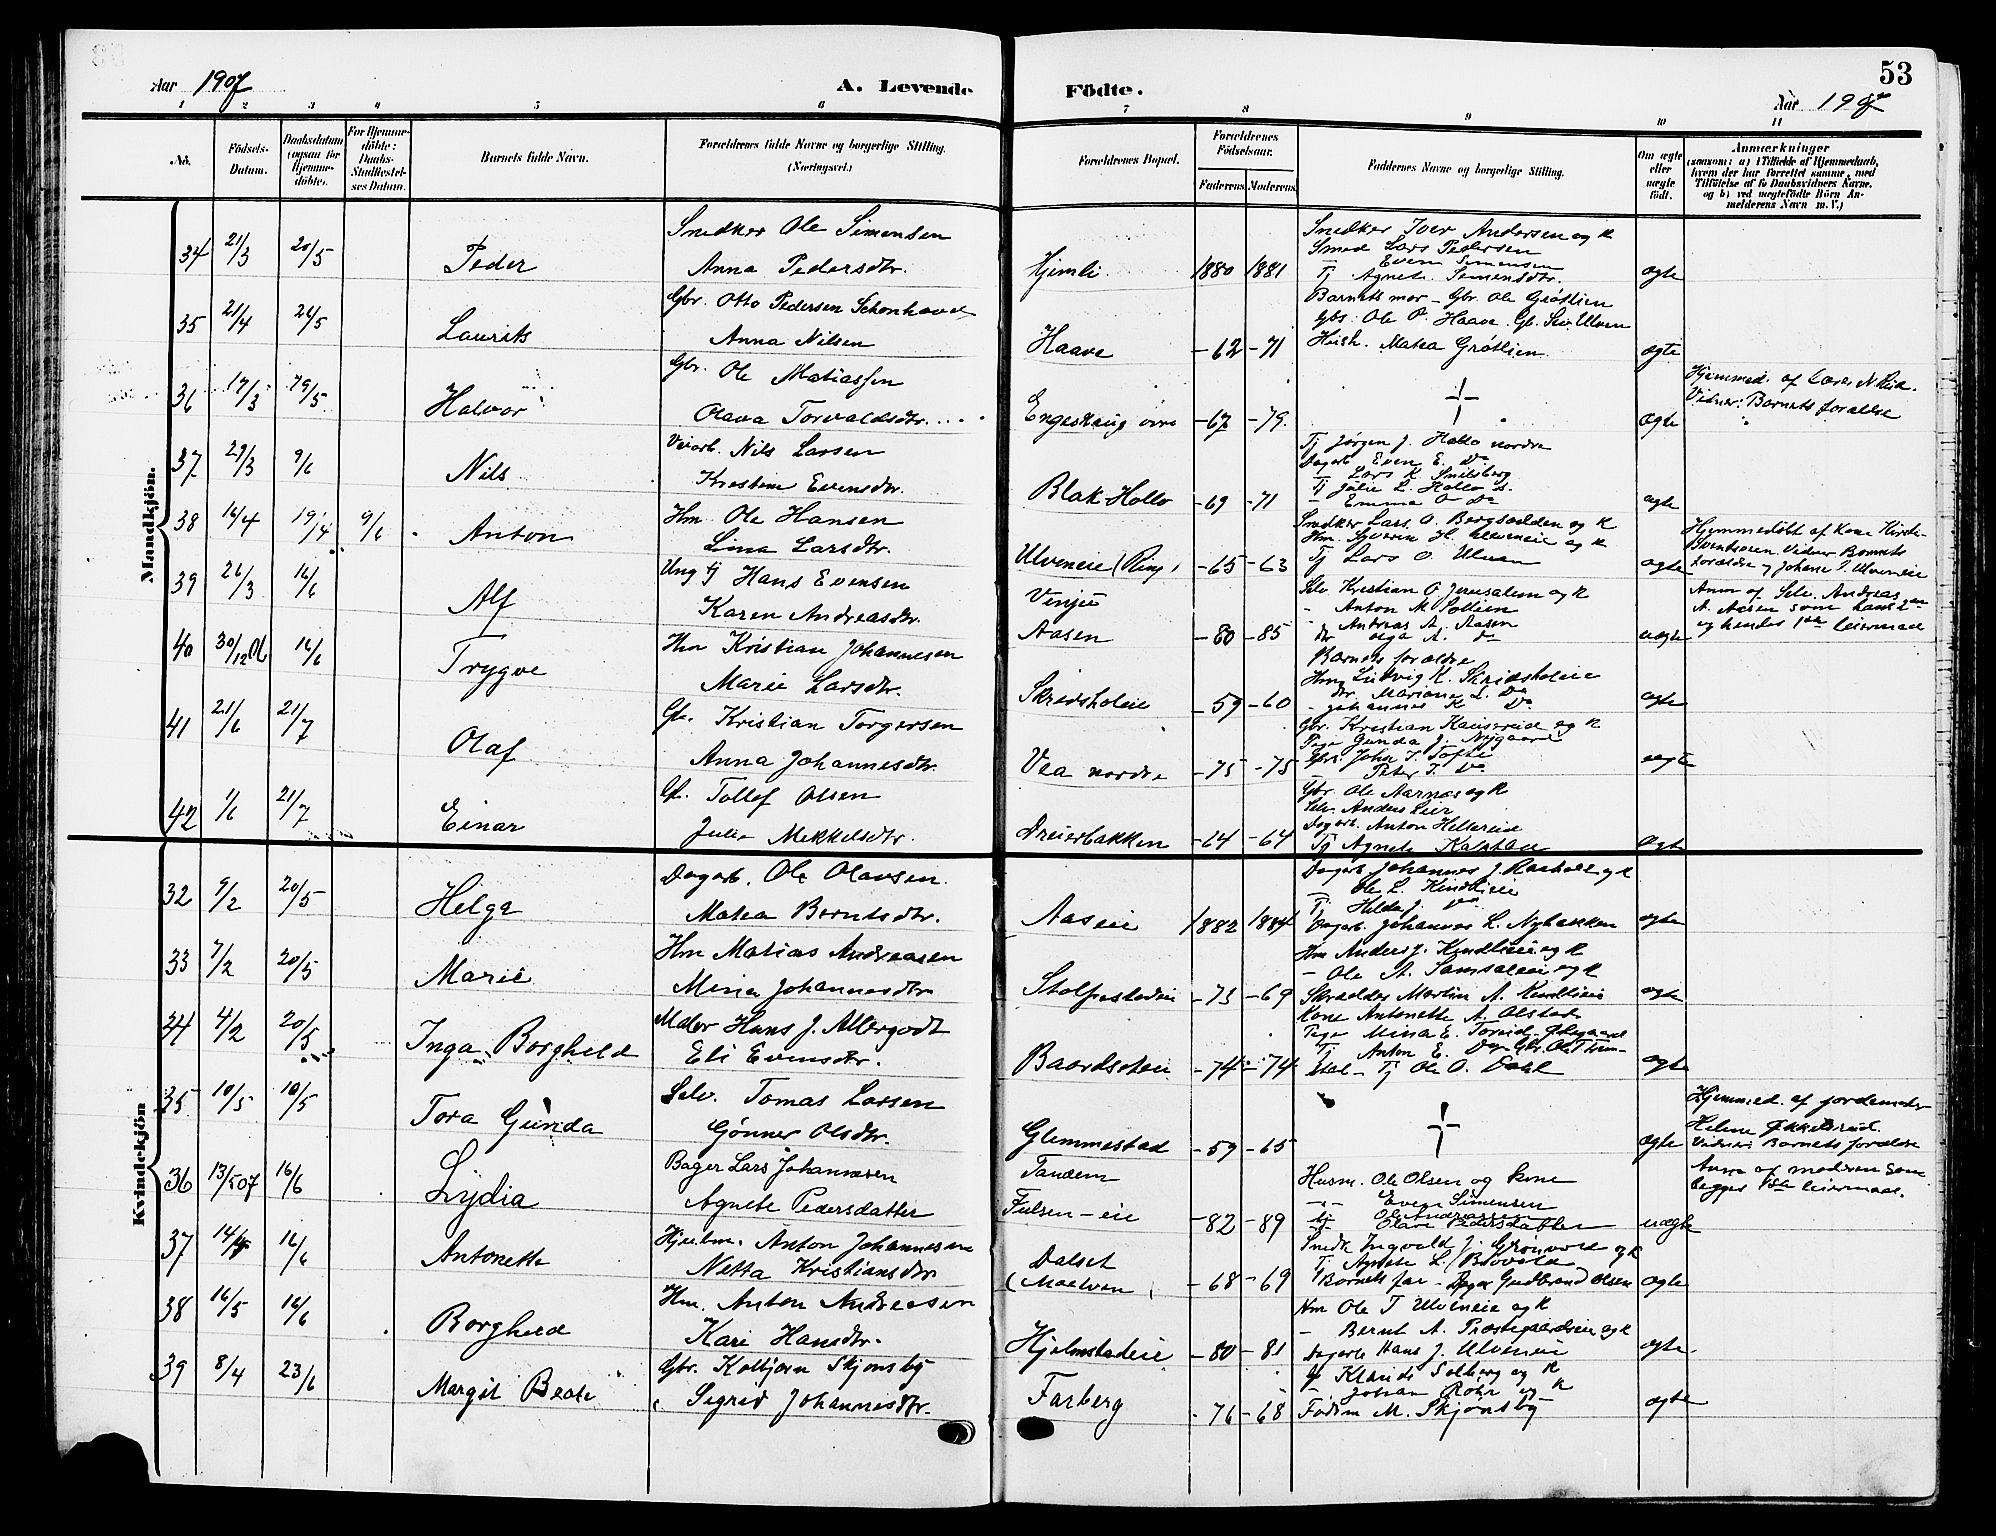 53
Aar 1907
A. Levende
Födte.
Aar 1907
1 2 3 4 5 6 7 8 9 10 11
No.
Födsels-
Datum.
Daabsdatum
(ogsaa for
Hjemme-
döbte).
For Hjemme-
döbte:
Daabs-
Stadfæstel-
ses Datum.
Barnets fulde Navn.
Forældrenes fulde Navne og borgerlige Stilling.
(Næringsvei.)
Forældrenes Bopæl.
Forældrenes
Födselsaar.
Faderens. Moderens.
Faddernes Navne og borgerlige Stilling.
Om ægte
eller
uægte
födt.
Anmærkninger
(saasom: a) i Tilfælde af Hjemmedaab,
hvem der har forrettet samme, med
Tilföielse af to Daabsvidners Navne.
og b) ved uægtefödte Börn An-
melderens Navn m. V.)
Mandkjön.
34 21/3 20/5 Peder
Snedker Ole Simensen
Anna Pedersdtr.
Hjemli 1880 1881
Snedker Iver Andersen og K
Smed Lars Pedersen
— Even Simensen
Tj Agnete Simensdtr.
ægte
35 21/4 26/5 Laurits
Gbr. Otto Pedersen Schonhaved
Anna Nilsen
Haave -62 -71
Barnets mor – Gbr. Ole Grøtlien
Gbs. Ole P. Haave. Gb. Siv. Ulven
Hush. Matea Grøtlien
ægte
36 17/3 19/5 Halvor
Gbr. Ole Matiassen
Olava Torvaldsdtr.
Engeskaug øvre -67 -79.
†
ægte
Hjemmed. af Lærer N. Lie.
Vidner: Barnets forældre
37 29/3 9/6 Nils
Veiarb. Nils Larsen
Kristine Evensdtr.
Blak-Hollo -69 -71
Tj Jørgen J. Hollo nordre
Dagarb Even E. Do
— Lars K. Smilsberg
Tj Julie L. Hollo n.
— Emma O Do
ægte
38 16/4 19/4 9/6 Anton
Hm. Ole Hansen
Lina Larsdtr.
Ulveneie (Ring) -65 -63
Snedker Lars O. Bergsodden og K
Hm. Syverin H. Ulveneie og K
Tj Lars O. Ulven
ægte
Hjemmedøbt af Kone Kirsti
Bventsøen Vidner Barnets
forældre og Johane I. Ulveneie
39 26/3 16/6 Alf
Ung tj Hans Evensen
Karen Andreasdtr.
Vinjue
Aasen -80 -85
Selv. Kristian O. Jerusalem og K
- Anton M. Sollien
- Andreas A. Aasen
dr Olga A. do
uægte
Anm af Selv. Andreas
A. Aasen som hans 2den
og hendes 1ste leiermaal
40 30/12 06 16/6 Trygve
Hm Kristian Johannesen
Marie Larsdtr.
Skredsholeie -59 -60
Barnets forældre
Hm Ludvig K. Skredsholeie
dr. Mariane L. Do
- Johannes K Do
ægte
41 21/6 21/7 Olaf
Gf. Kristian Torgersen
Anna Johannesdtr.
Vea nordre -75 -75
Gbr. Kristian Hansereid og K
Pige Gunda J. Nygaard
Gbs. Johan J. Tofte
Peter J. Do
ægte
42 1/6 21/7 Einar
Gf. Tollef Olsen
Julia Mekkelsdtr.
Dreierbakken -64 -64
Gbr. Ole Aarnes og K
Selv. Anders Lier
Dagarb. Anton Hellereid
Tj Agnete Kalstad
ægte
Kvindekjön
32 9/2 20/5 Helga
Dagarb. Ole Olavsen.
Matea Berntsdtr.
Aaseie 1882 1884
Dagarb Johannes J. Raaholt og K
— Ole L. Kindlieie
Tj Hilda J. Do
Dagarb. Johannes L. Nybakken
ægte
33 7/2 20/5 Marie
Hm Matias Andreasen
Mina Johannesdtr
Stolpestadeie -73 -69
Hm Anders J. Kindlieie og K
– Ole A. Samsaleie og K
Skrædder Martin A. Kindlieie
ægte
34 4/2 20/5 Inga Borghild
Maler Hans J. Allergodt
Eli Evensdtr.
Baardseteie -74 -74
Kone Antonette A. Olstad
Pige Mina E. Toreid
Tj Anton E. Do
stad – Tj Ole O. Dahl
ægte
35 10/5 10/5 Tora Gunda
Selv. Tomas Larsen
Gønner Olsdtr.
Glemmestad -59 -65
†
ægte
Hjemmed. af jordemoder
Helene Økkelsrud.
Vidner: Barnets forældre
36 13/5 07 16/6 Lydia
Bager Lars Johannesen
Agnete Pedersdatter
Tandem
Fulsen-eie -82 -89
Husm. Ole Olsen og kone
— Even Simensen
tj Ole Andreassen
tj Olave Pedersdatter
uægte
Anm. af moderen som
begger 1ste leiermaal.
37 14/4 16/6 Antonette
Hjulm. Anton Johannesen
Netta Kristiansdtr
Dalset
(Moelven) -68 -69
Snedk Ingvald J. Grønvold og K
Tj Agnete L. Brovold
Barnets far – Bager Gudbrand Olsen
ægte
38 16/5 16/6 Borghild
Hm. Anton Andreasen
Kari Hansdtr.
Hjelmstadeie -80 -81
Hm Ole T Ulveneie og K
– Bernt A. Præstegaardseie og K
Dagarb Hans J. Ulveneie
ægte
39 8/4 23/6 Margit Beate
Gbr. Kolbjørn Skjønsby
Sigrid Johannesdtr.
Farberg -76 -68
Gf Klaus Solberg og K
- Johan Rohr og K
Frøken M. Skjønsby
ægte